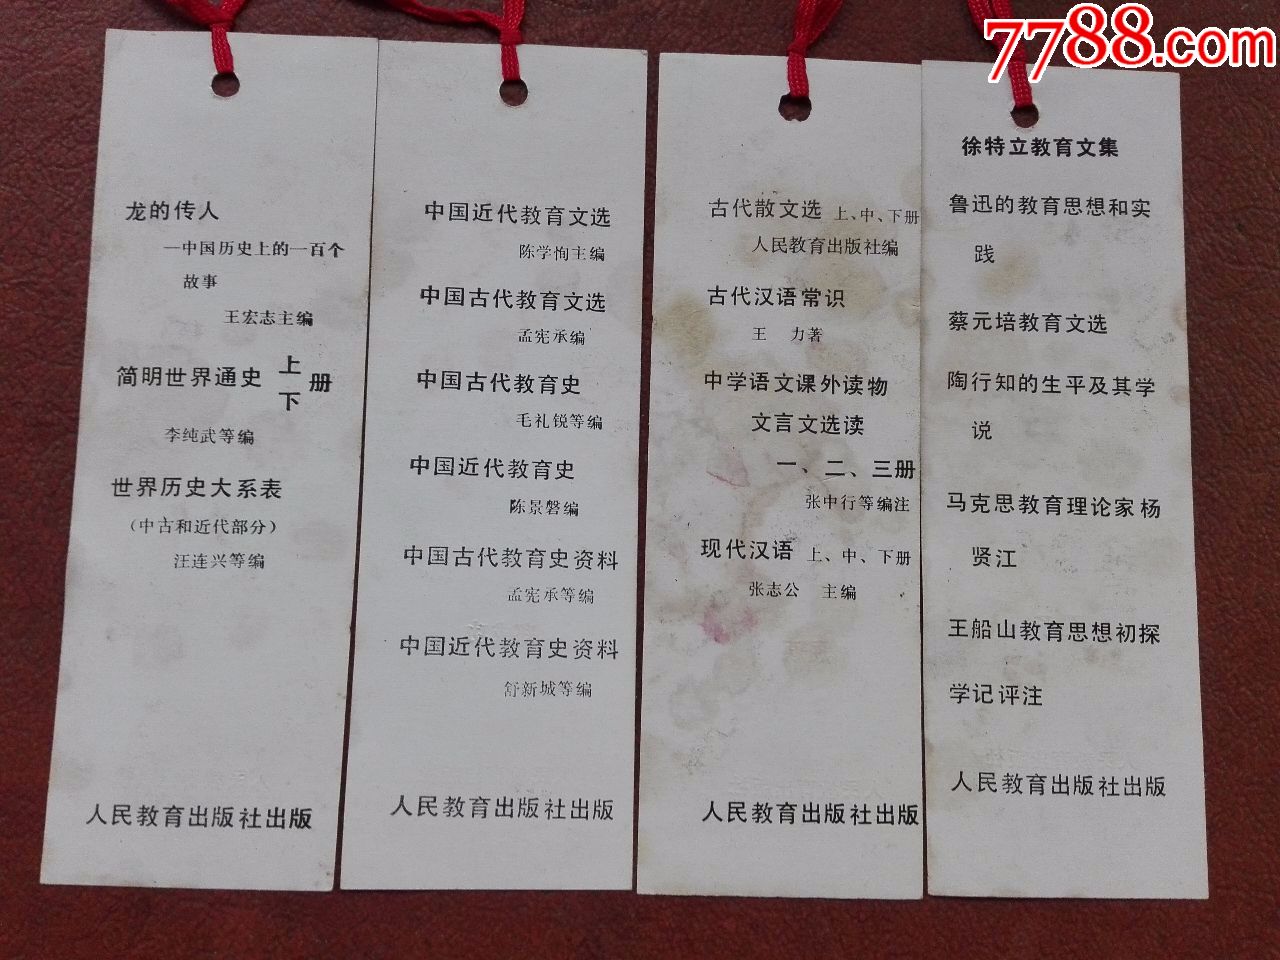 7788.com
龙的传人
—中国历史上的一百个
故事
王宏志主编
简明世界通史 上下册
李纯武等编
世界历史大系表
（中古和近代部分）
汪连兴等编
人民教育出版社出版
中国近代教育文选
陈学恂主编
中国古代教育文选
孟宪承编
中国古代教育史
毛礼锐等编
中国近代教育史
陈景磐编
中国古代教育史资料
孟宪承等编
中国近代教育史资料
舒新城等编
人民教育出版社出版
古代散文选 上、中、下册
人民教育出版社编
古代汉语常识
王 力著
中学语文课外读物
文言文选读
一、二、三册
张中行等编注
现代汉语 上、中、下册
张志公 主编
人民教育出版社出版
徐特立教育文集
鲁迅的教育思想和实
践
蔡元培教育文选
陶行知的生平及其学
说
马克思教育理论家杨
贤江
王船山教育思想初探
学记评注
人民教育出版社出版